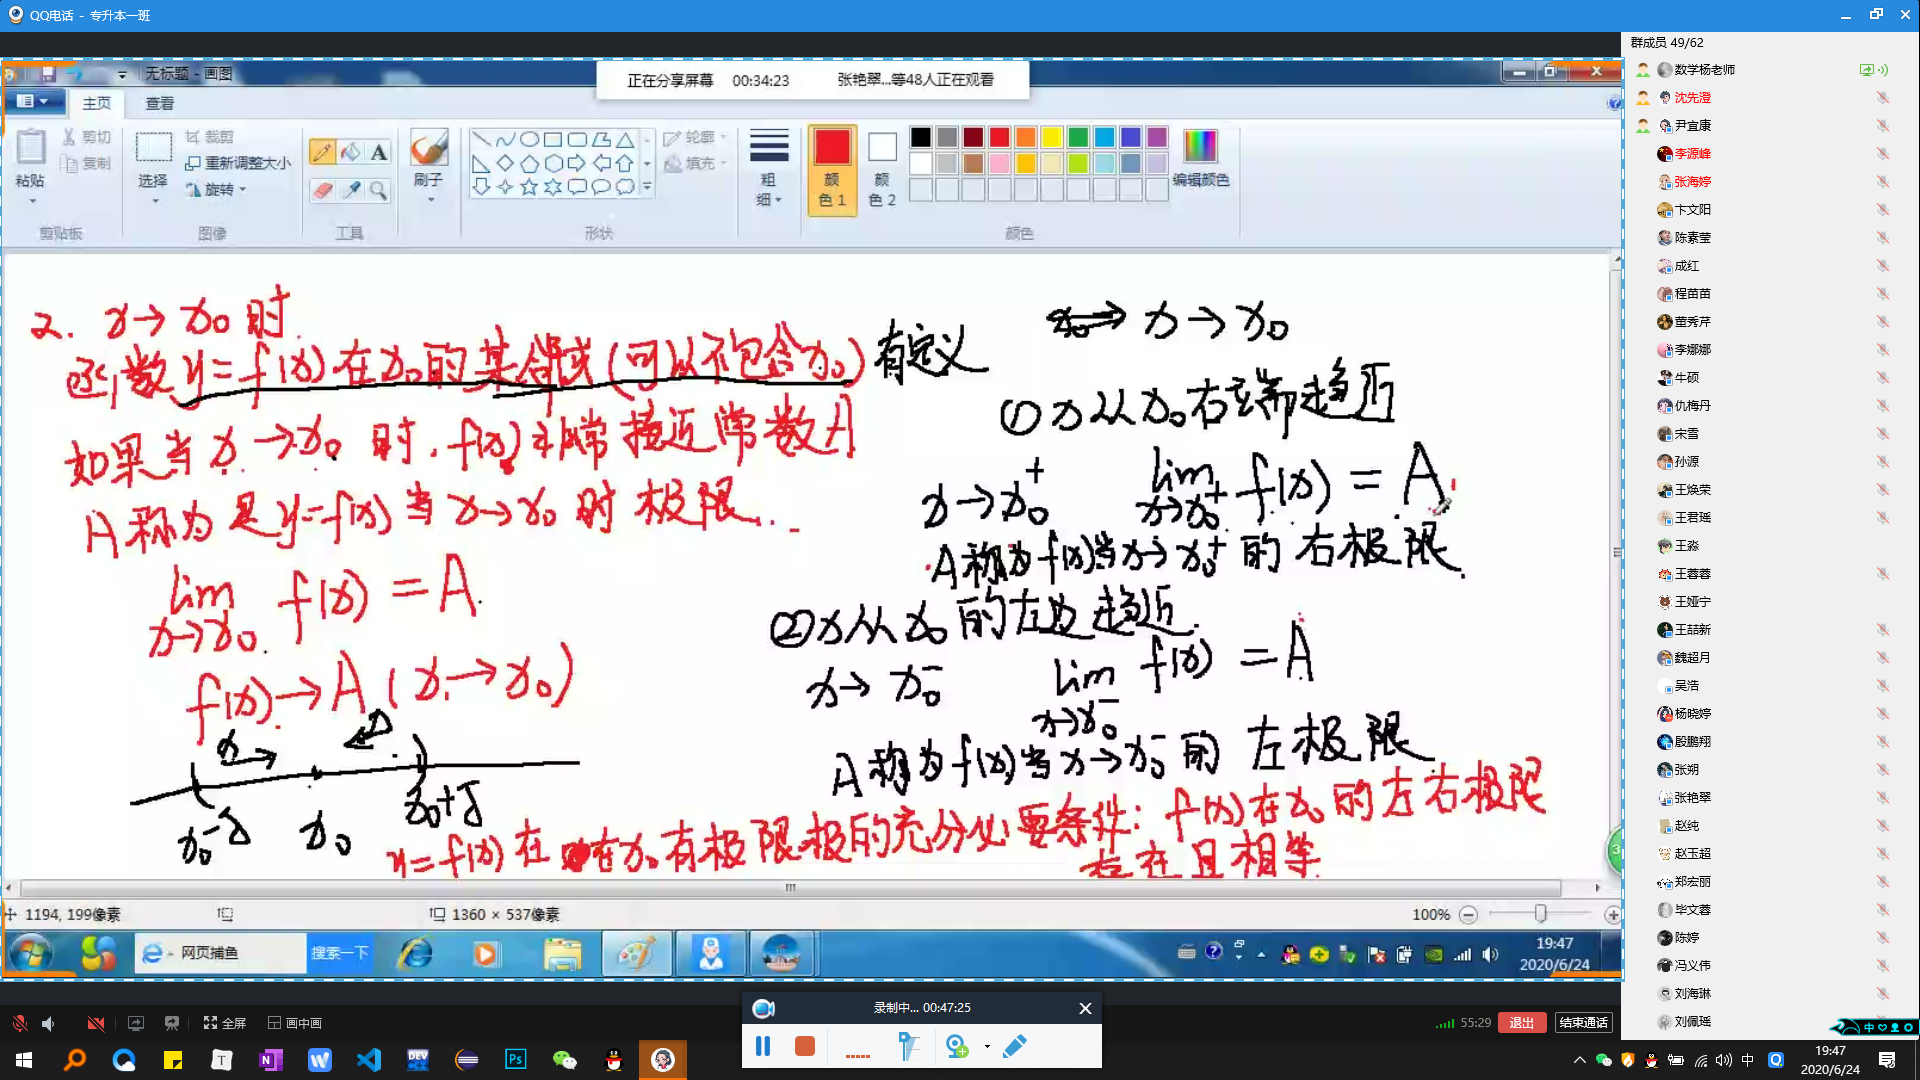 QQ电话 - 专升本一班
群成员 49/62
无标题 - 画图
正在分享屏幕 00:34:23 张艳翠...等48人正在观看
主页 查看
粘贴
剪切
复制
剪贴板
选择
裁剪
重新调整大小
旋转
图像
A
工具
刷子
轮廓
填充
形状
粗细
颜色 1
颜色 2
编辑颜色
颜色
2. x→x₀ 时
函数 y=f(x) 在 x₀ 的某邻域(可以不包含 x₀) 有定义
如果当 x→x₀ 时, f(x) 非常接近常数 A
A 称为是 y=f(x) 当 x→x₀ 时 极限.
lim f(x) = A
x→x₀
f(x)→A (x→x₀)
x
x₀-δ x₀ x₀+δ
x→x₀
① x从 x₀ 右端趋近
x→x₀⁺ lim f(x) = A
x→x₀⁺
A称为 f(x)当 x→x₀⁺ 的 右极限.
② x从 x₀ 的左边趋近.
x→x₀⁻ lim f(x) = A
x→x₀⁻
A 称为 f(x) 当 x→x₀⁻ 的 左极限
y=f(x) 在 在x₀有极限极的充分必要条件: f(x)在x₀的左右极限
存在且相等.
1194, 199像素
1360 × 537像素
100%
网页捕鱼 搜索一下
19:47
2020/6/24
数学杨老师
沈先澄
尹宜康
李源峰
张海婷
卞文阳
陈素莹
成红
程苗苗
董秀芹
李娜娜
牛硕
仇梅丹
宋雪
孙源
王焕荣
王君瑶
王淼
王蓉蓉
王娅宁
王喆新
魏超月
吴浩
杨晓婷
殷鹏翔
张朔
张艳翠
赵纯
赵玉超
郑宏丽
毕文蓉
陈婷
冯义伟
刘海琳
刘佩瑶
全屏
画中画
录制中... 00:47:25
55:29
退出
结束通话
中
19:47
2020/6/24